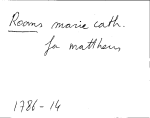 Rooms marie cath.
fa mattheus
1786-14